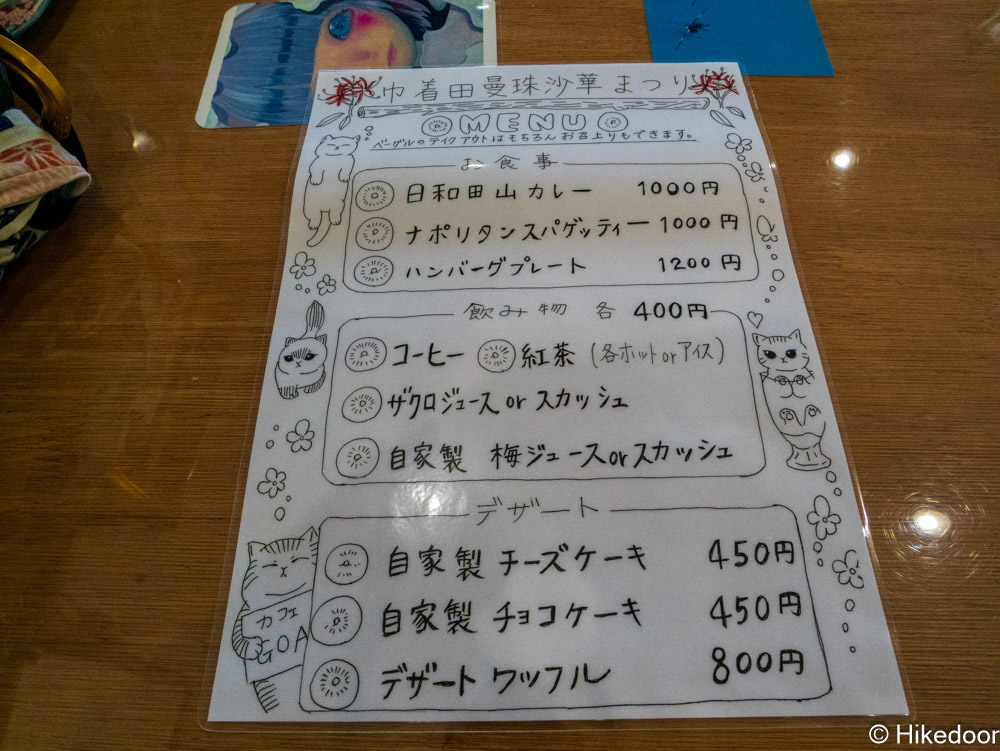 巾着田曼珠沙華まつり
MENU
ベーグルのテイクアウトはもちろんお召上りもできます。
お食事
日和田山カレー 1000円
ナポリタンスパゲッティー 1000円
ハンバーグプレート 1200円
飲み物 各 400円
コーヒー 紅茶 (各ホットorアイス)
ザクロジュース or スカッシュ
自家製 梅ジュースorスカッシュ
デザート
自家製 チーズケーキ 450円
自家製 チョコケーキ 450円
デザート ワッフル 800円
カフェ
GOA
© Hikedoor